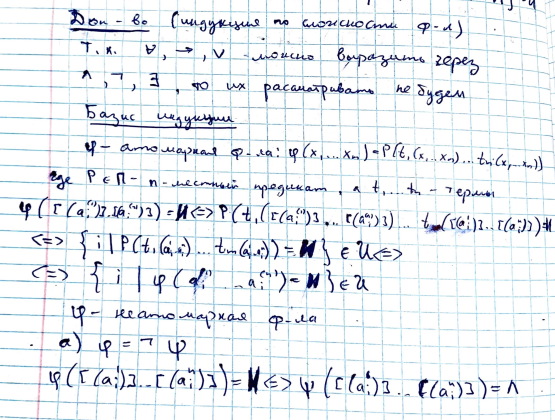 Док-во (индукция по сложности ф-л)
Т.к. ∀, →, ∨ можно выразить через
∧, ¬, ∃, то их рассматривать не будем
Базис индукции
φ - атомарная ф-ла: φ(x₁...xₙ)=P(t₁(x₁...xₙ)...tₘ(x₁...xₙ))
где P∈П - n-местный предикат, а t₁...tₙ - термы
φ([(aᵢ¹)]..[(aᵢⁿ)])=И<=>P(t₁([(aᵢ¹)]...[(aᵢⁿ)])...tₘ([(aᵢ¹)]..[(aᵢⁿ)])=И
<=> {i | P(t₁(aᵢ..aᵢ)...tₘ(aᵢ..aᵢ))=И} ∈ U <=>
<=> {i | φ(aᵢ¹...aᵢ⁽ⁿ⁾)=И} ∈ U
φ - неатомарная ф-ла
а) φ = ¬ψ
φ([(aᵢ¹)]..[(aᵢⁿ)])=И<=>ψ([(aᵢ¹)]..[(aᵢⁿ)])=Л